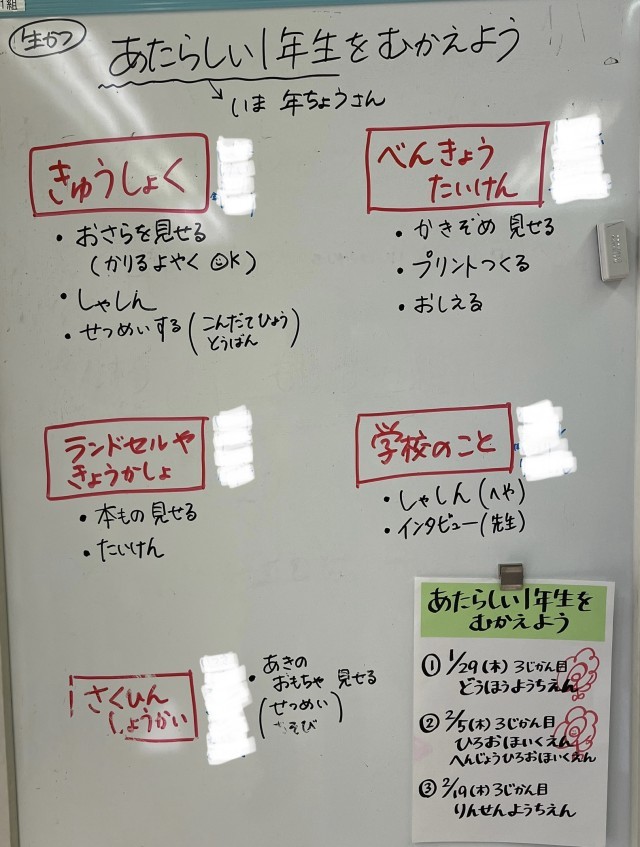 1組
生かつ
あたらしい1年生をむかえよう
いま 年ちょうさん
きゅうしょく
・おさらを見せる
(かりるよやく OK)
・しゃしん
・せつめいする(こんだてひょう
とうばん)
べんきょう
たいけん
・かきぞめ 見せる
・プリントつくる
・おしえる
ランドセルや
きょうかしょ
・本もの 見せる
・たいけん
学校のこと
・しゃしん(へや)
・インタビュー(先生)
さくひん
しょうかい
・あきの
おもちゃ 見せる
(せつめい
あそび)
あたらしい1年生を
むかえよう
① 1/29(木) 3じかん目
どうほうようちえん
② 2/5(木) 3じかん目
ひろおほいくえん
へんじょうひろおほいくえん
③ 2/19(木) 3じかん目
りんせんようちえん